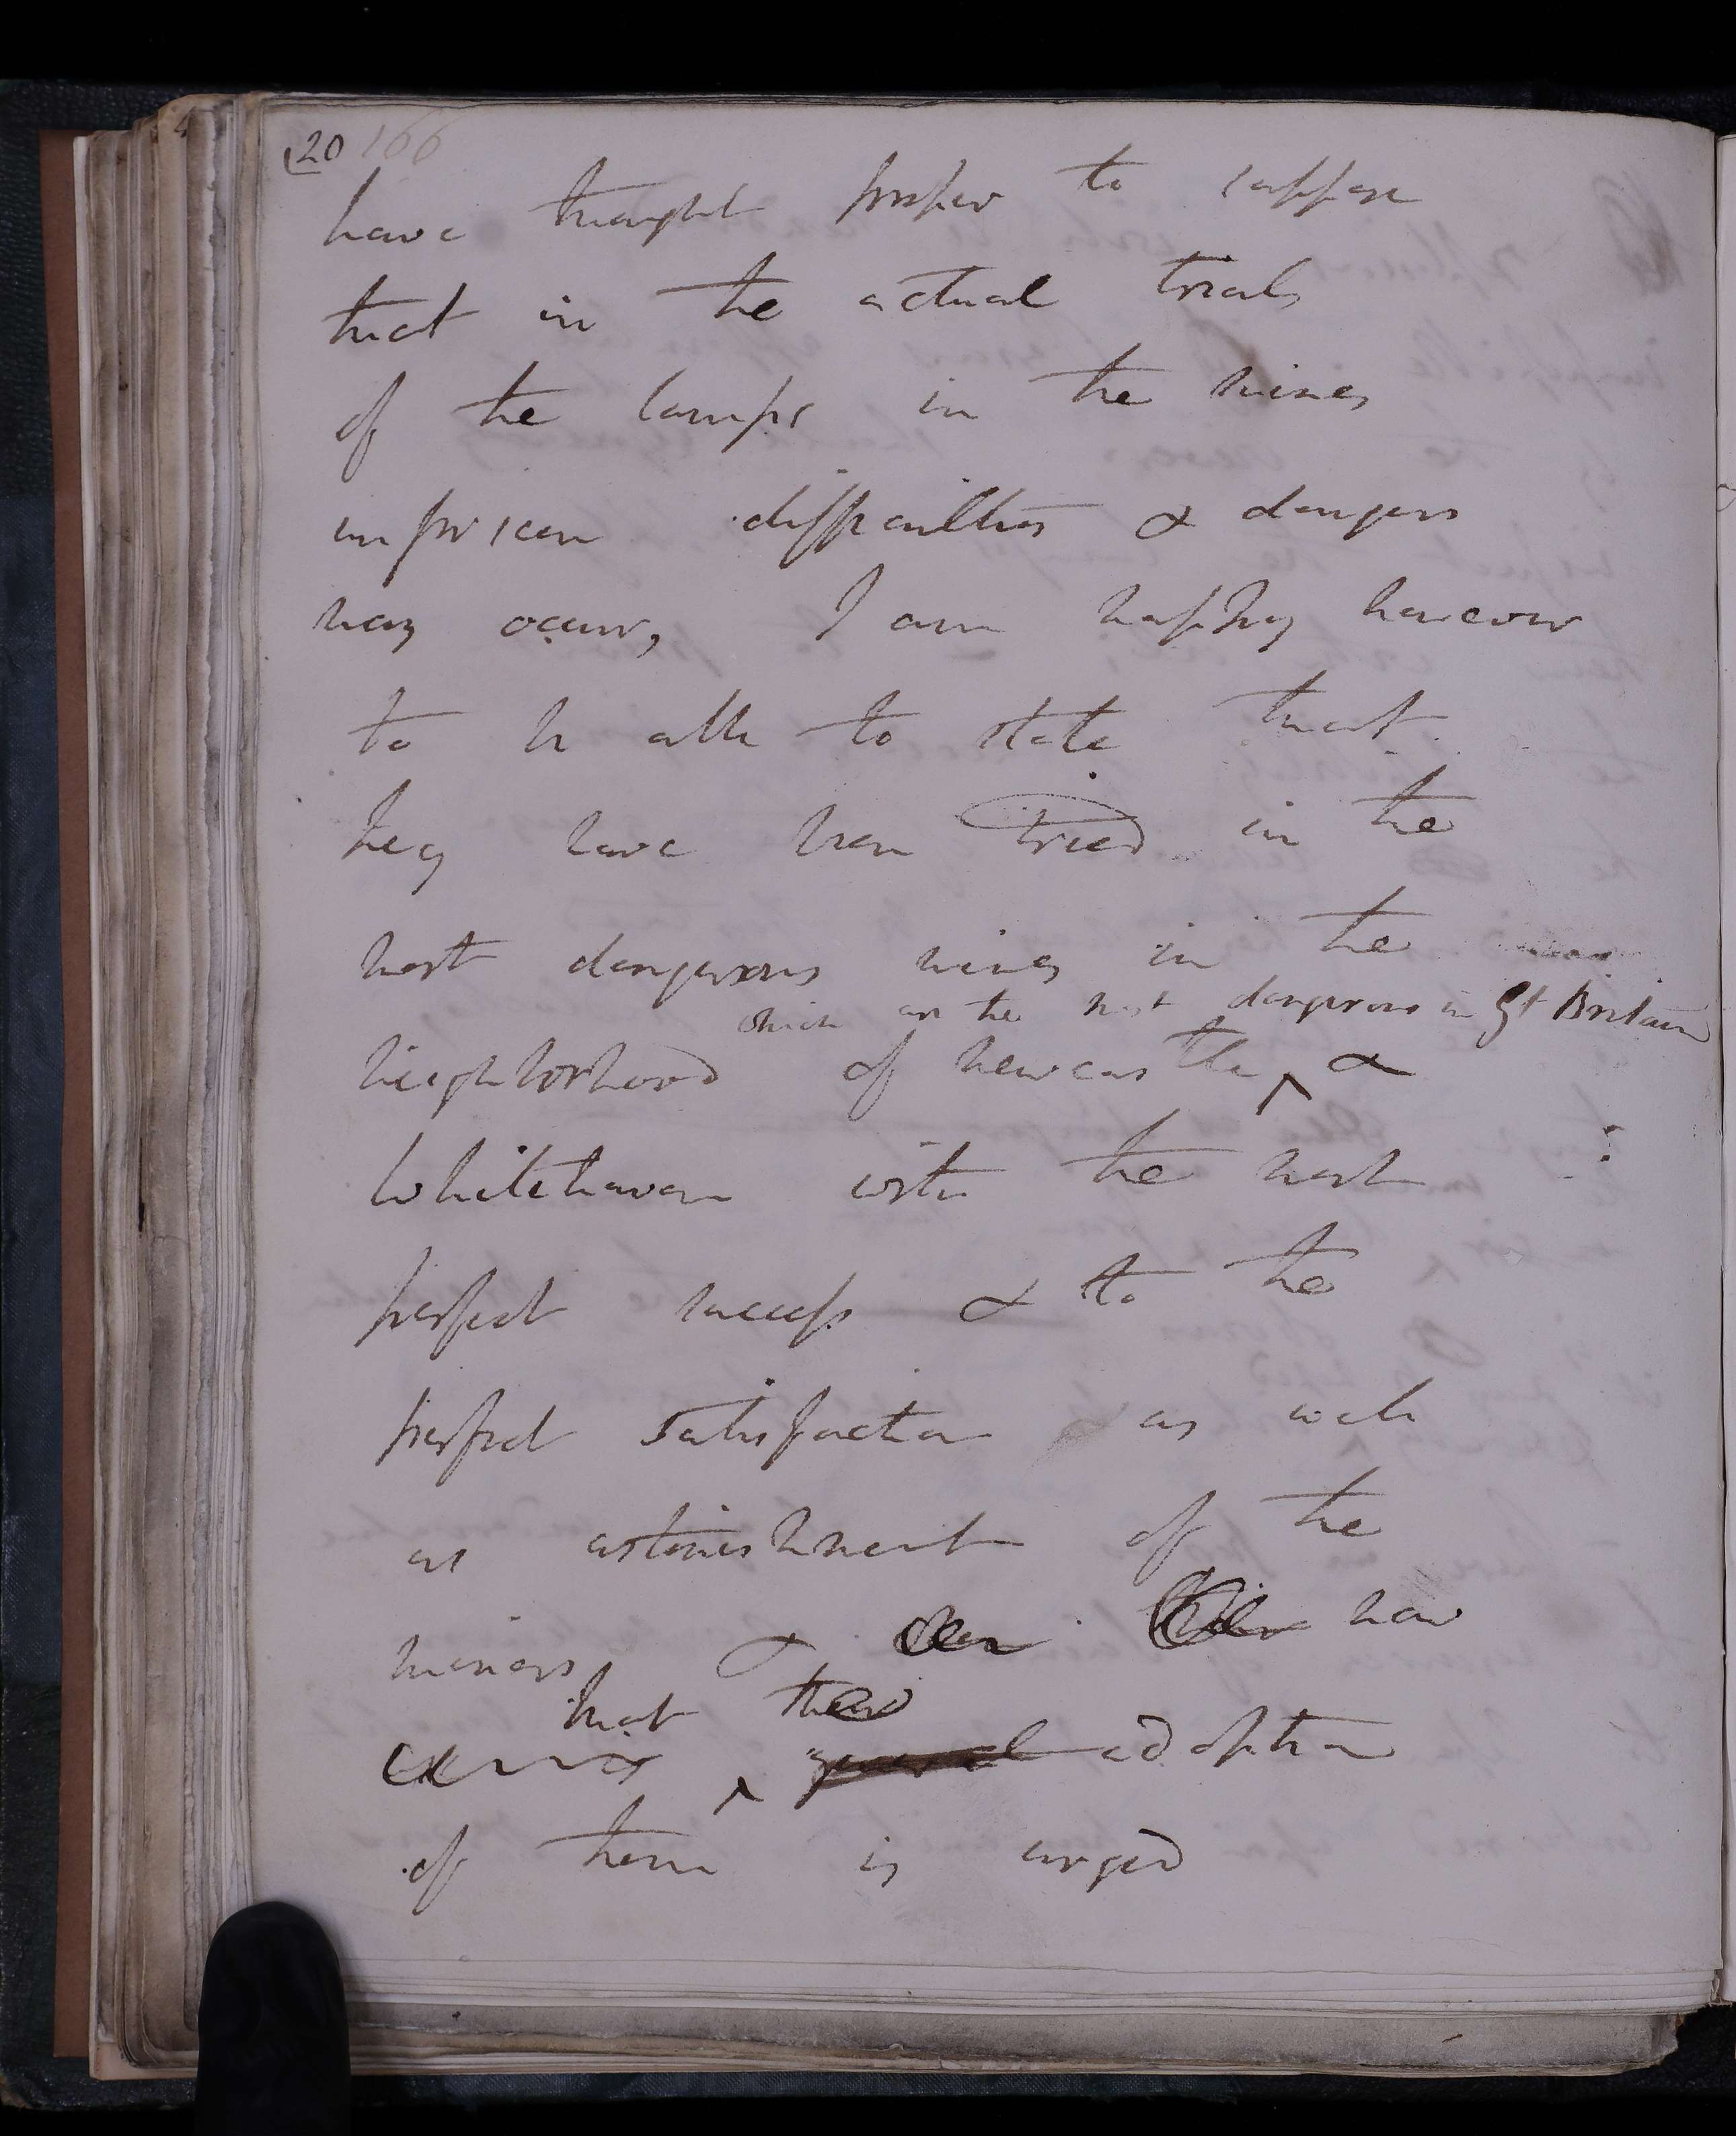 20 166
have thought proper to suppose
that in the actual trials
of the lamps in the mines
unforseen difficulties & dangers
may occur, I am happy however
to be able to state that
they have been tried in the
most dangerous mines in the
which are the most dangerous in Gt Britain
neighborhood of Newcastle &
Whitehaven with the most
perfect success & to the
perfect satisfaction as well
as astonishment of the
miners & now
that the
adoption
of them is urged